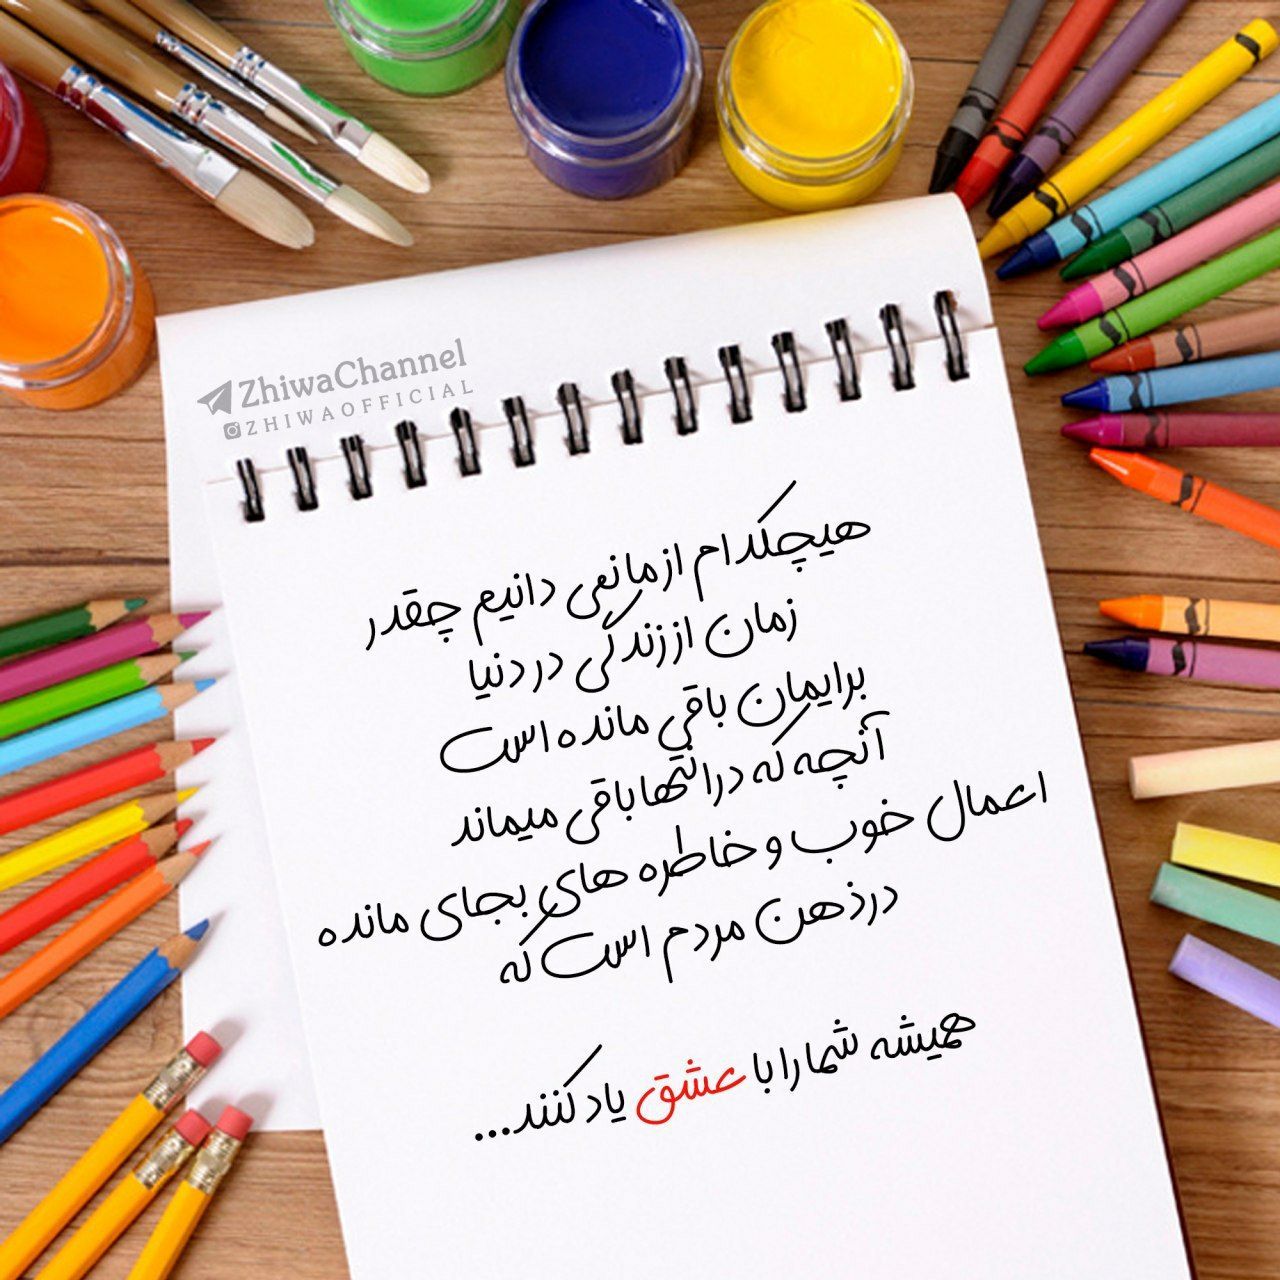 ZhiwaChannel
ZHIWAOFFICIAL
هیچکدام از ما نمی دانیم چقدر
زمان از زندگی در دنیا
برایمان باقی مانده است
آنچه که در انتها باقی میماند
اعمال خوب و خاطره های بجای مانده
در ذهن مردم است که
همیشه شما را با عشق یاد کنند...